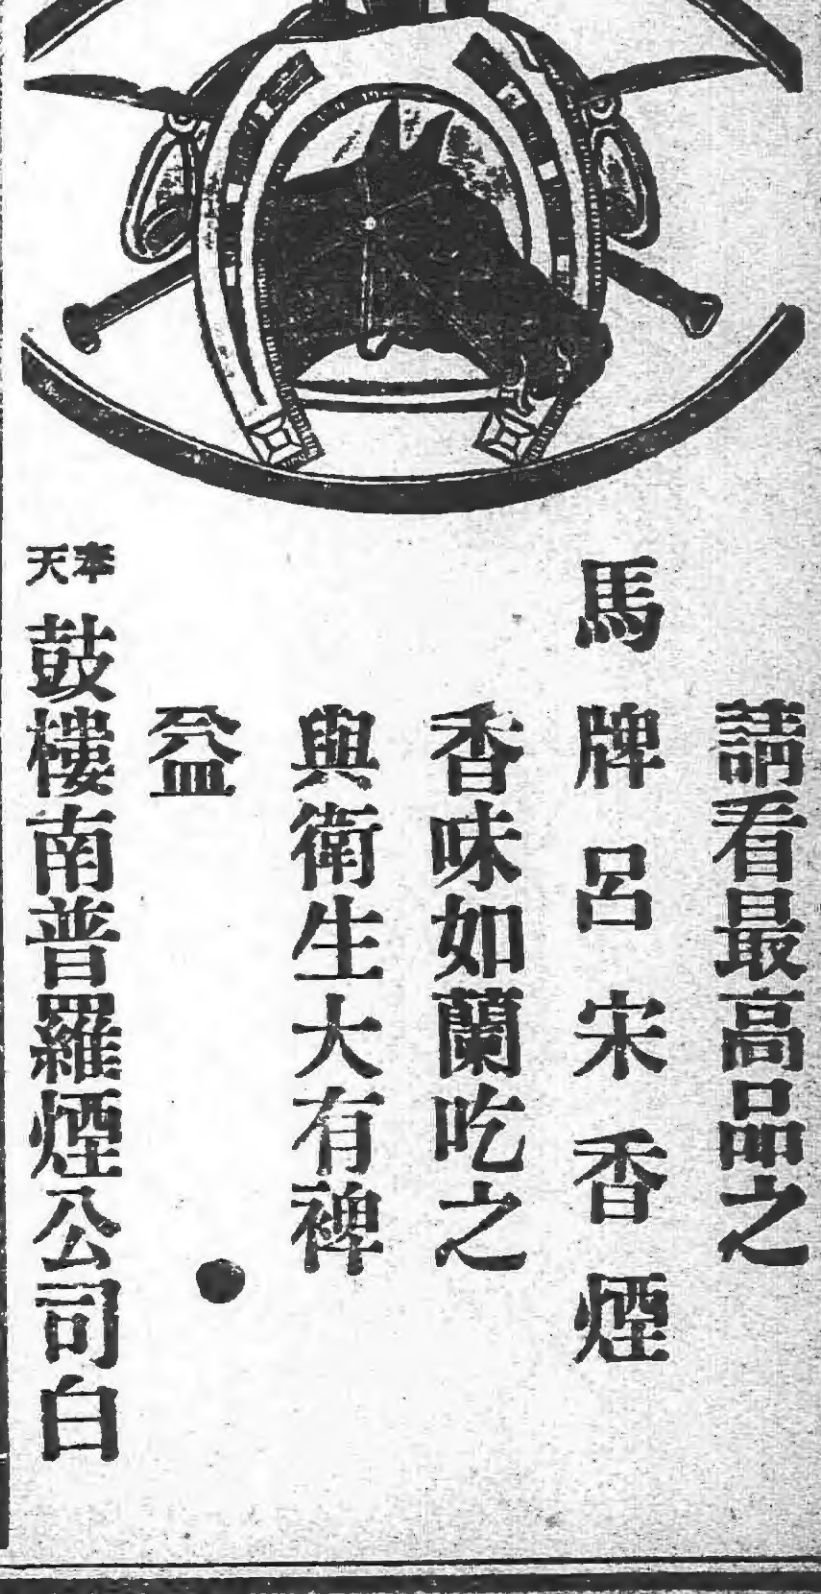 請看最高品之
馬牌呂宋香煙
香味如蘭吃之
與衛生大有裨
益
奉天
鼓樓南普羅煙公司白